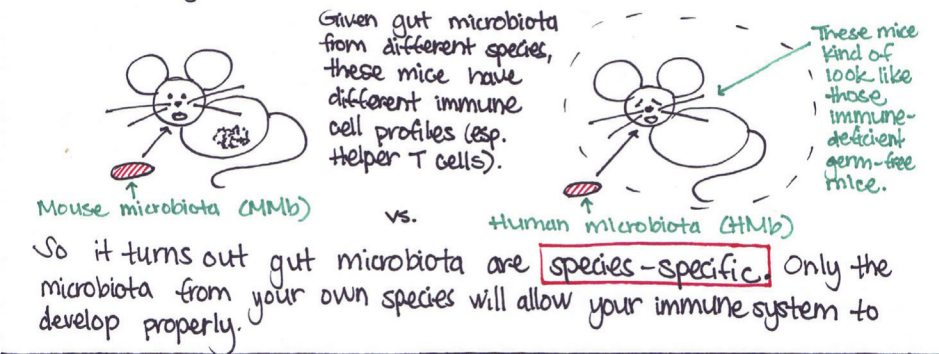 Given gut microbiota
from different species,
these mice have
different immune
cell profiles (esp.
Helper T cells).
These mice
kind of
look like
those
immune-
deficient
germ-free
mice.
Mouse microbiota (MMb)
vs.
Human microbiota (HMb)
So it turns out gut microbiota are species-specific. Only the
microbiota from your own species will allow your immune system to
develop properly.